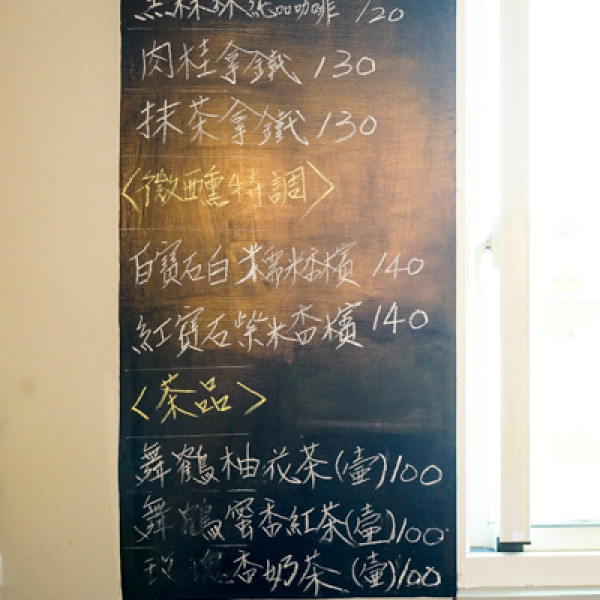 黑森林純品咖啡 120
肉桂拿鐵 130
抹茶拿鐵 130
〈微醺特調〉
白寶石白糯米香檳 140
紅寶石紫米香檳 140
〈茶品〉
舞鶴柚花茶(壺)100
舞鶴蜜香紅茶(壺)100
玫瑰香奶茶(壺)100